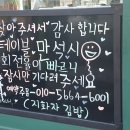 찾아 주셔서 감사합니다
테이블 만석시
회전율이 빠르니
잠시만 기다려주세요
예약주문-010-5664-6001
(지화자 김밥)